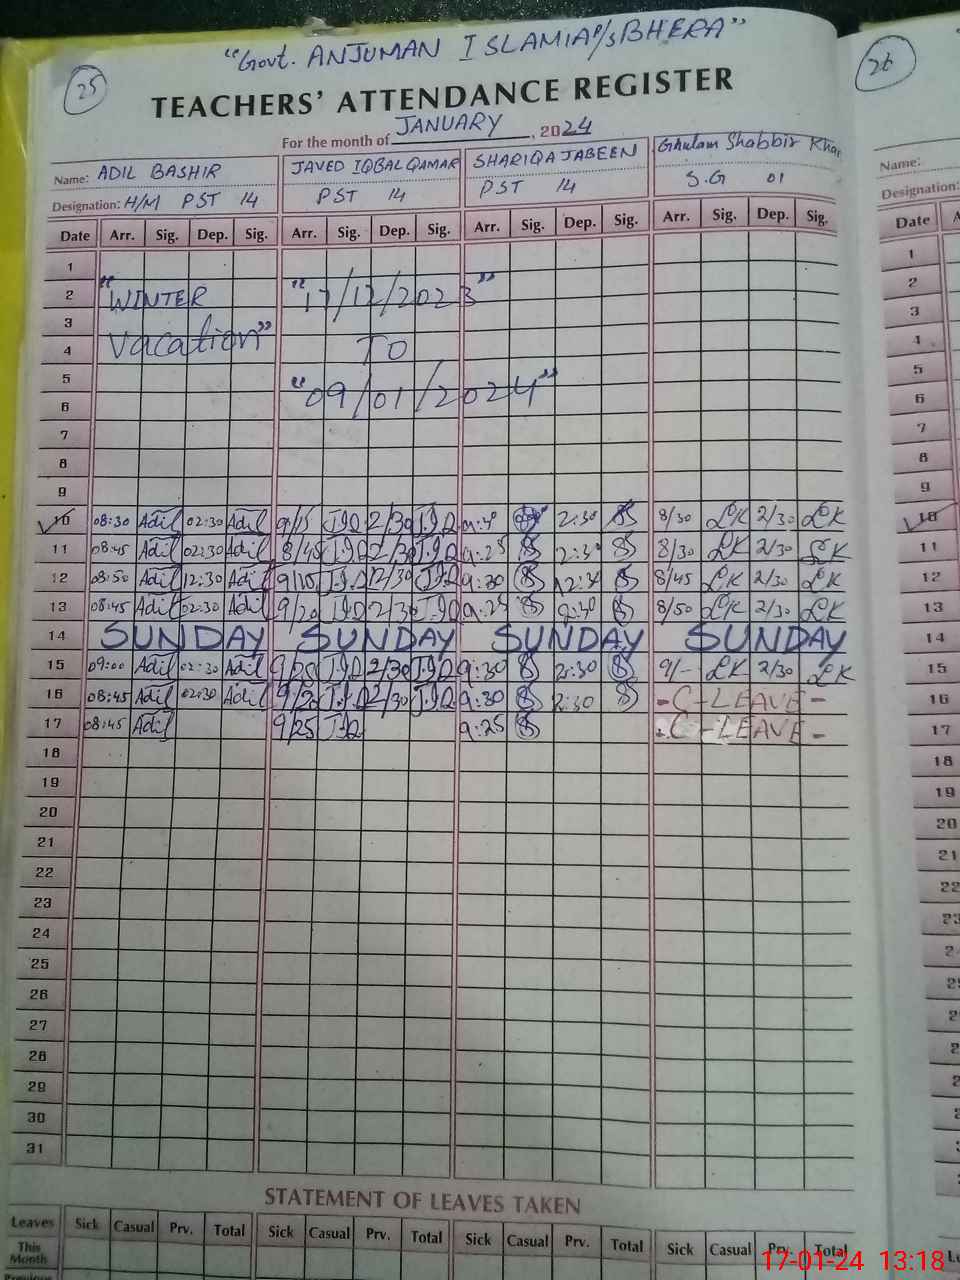 "Govt. ANJUMAN ISLAMIA P/S BHERA"
25
26
TEACHERS' ATTENDANCE REGISTER
For the month of JANUARY, 2024
Name: ADIL BASHIR JAVED IQBAL QAMAR SHARIQA JABEEN Ghulam Shabbir Khan Name:
Designation: H/M PST 14 PST 14 PST 14 S.G 01 Designation:
Date Arr. Sig. Dep. Sig. Arr. Sig. Dep. Sig. Arr. Sig. Dep. Sig. Arr. Sig. Dep. Sig. Date
1 1
2 "WINTER "17/12/2023" 2
3 3
4 Vacation" TO 4
5 5
6 "09/01/2024" 6
7 7
8 8
9 9
10 08:30 Adil 02:30 Adil 9/15 J.I.Q 2/30 J.I.Q 2:30 8/30 2/30 10
11 08:45 Adil 02:30 Adil 8/45 J.I.Q 2/30 J.I.Q 9:25 2:30 8/30 2/30 11
12 08:50 Adil 12:30 Adil 9/10 J.I.Q 12/30 J.I.Q 9:20 12:30 8/45 2/30 12
13 08:45 Adil 02:30 Adil 9/20 J.I.Q 2/30 J.I.Q 9:25 2:30 8/50 2/30 13
14 SUNDAY SUNDAY SUNDAY SUNDAY 14
15 09:00 Adil 02:30 Adil 9/25 J.I.Q 2/30 J.I.Q 9:30 2:30 9/- 2/30 15
16 08:45 Adil 02:30 Adil 9/20 J.I.Q 2/30 J.I.Q 9:30 2:30 -C-LEAVE- 16
17 08:45 Adil 9/25 J.I.Q 9:25 -C-LEAVE- 17
18 18
19 19
20 20
21 21
22 22
23 23
24
25
26
27
28
29
30
31
STATEMENT OF LEAVES TAKEN
Leaves Sick Casual Prv. Total Sick Casual Prv. Total Sick Casual Prv. Total Sick Casual Prv. Total
This Month
Previous
17-01-24 13:18